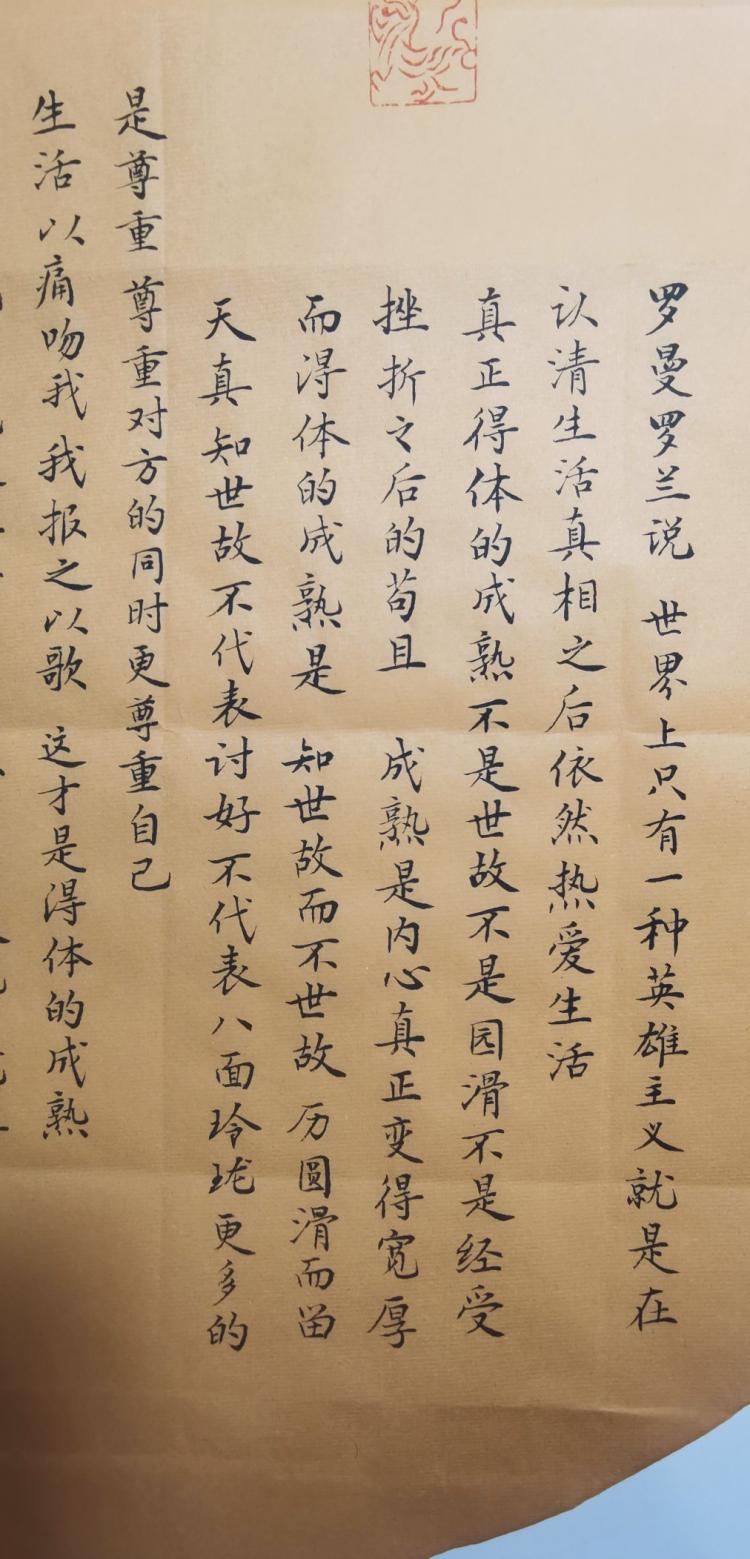 罗曼罗兰说 世界上只有一种英雄主义就是在
认清生活真相之后依然热爱生活
真正得体的成熟不是世故不是园滑不是经受
挫折之后的苟且 成熟是内心真正变得宽厚
而得体的成熟是 知世故而不世故 历圆滑而留
天真知世故不代表讨好不代表八面玲珑更多的
是尊重 尊重对方的同时更尊重自己
生活以痛吻我我报之以歌 这才是得体的成熟